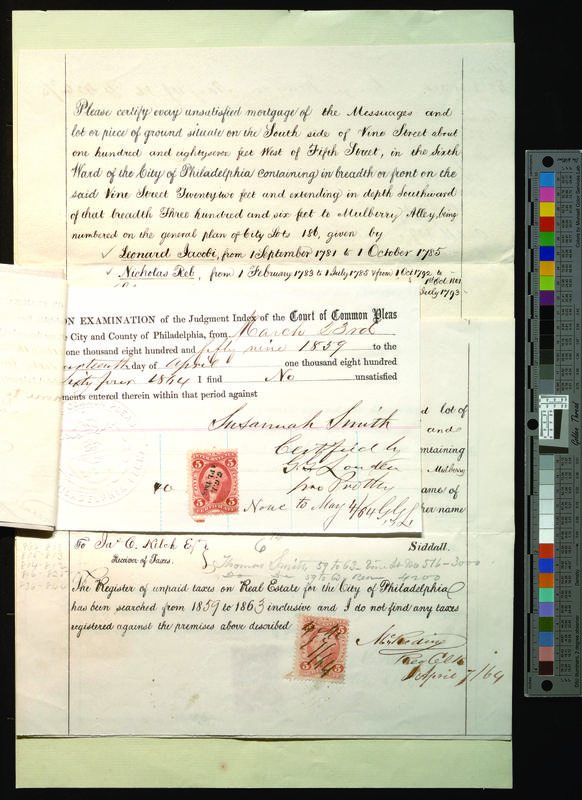 Please certify every unsatisfied mortgage of the Messuages and
lot or piece of ground situate on the South side of Vine Street about
one hundred and eightyseven feet West of Fifth Street, in the Sixth
Ward of the City of Philadelphia Containing in breadth or front on the
said Vine Street Twentytwo feet and extending in depth Southward
of that breadth Three hundred and six feet to Mulberry Alley, being
numbered on the general plan of City Lots 186, given by
✓ Leonard Jacobi, from 1 September 1781 to 1 October 1785
✓ Nicholas Reb, from 1 February 1783 to 1 July 1785 & from 1 Oct 1792 to
July 1793
ON EXAMINATION of the Judgment Index of the Court of Common Pleas
e City and County of Philadelphia, from March 23rd
one thousand eight hundred and fifty nine 1859 to the
day of April one thousand eight hundred
sixty four 1864 I find No unsatisfied
ments entered therein within that period against
Susannah Smith
Certified by
None to May 4/64
d lot of
and
ontaining
Mulberry
ame of
her name
To Jas. C. Kelch Esq.
Receiver of Taxes.
Siddall.
Thomas Smith 57 to 62 Vine St No 516 - 3000
4200
The Register of unpaid taxes on Real Estate for the City of Philadelphia
has been searched from 1859 to 1863 inclusive and I do not find any taxes
registered against the premises above described
Reg Clk
April 7/64